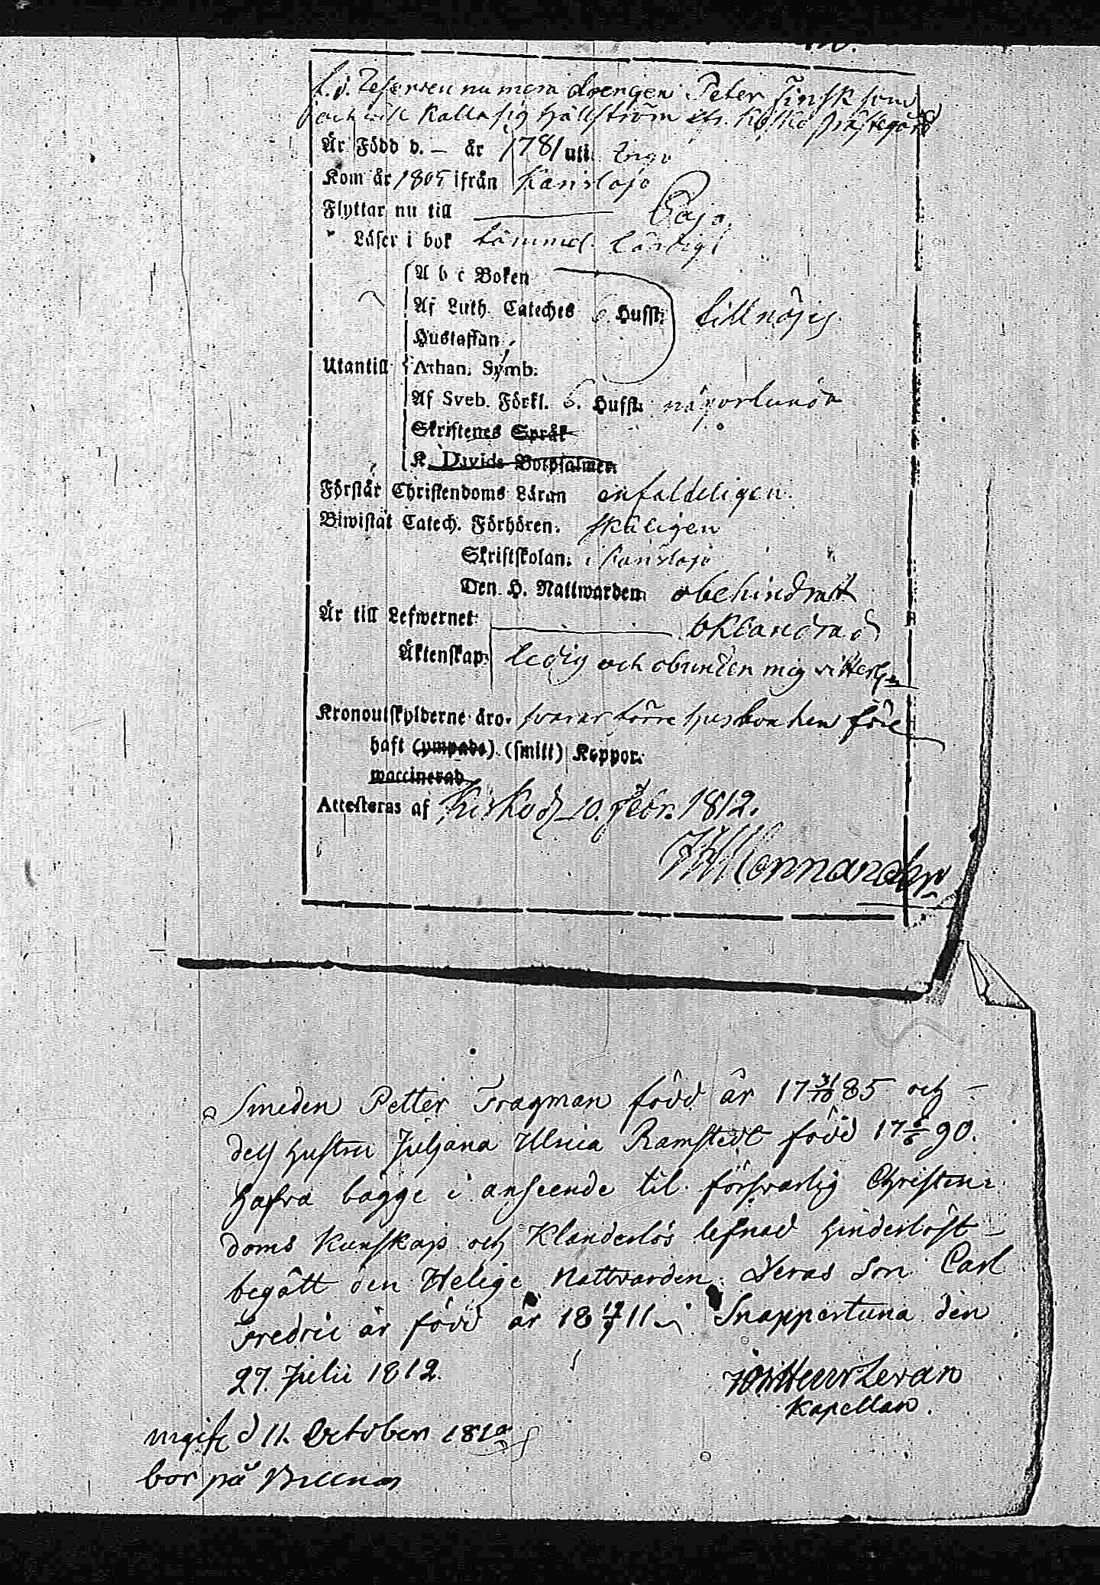 f. d. Reserven nu mera drengen Peter Finsk som
och vill kalla sig Hällström ifr. Kisko prästegård
Är Född d. — år 1781 uti Ingo
Kom år 1805 ifrån Karislojo
Flyttar nu till Pojo.
Läser i bok tämmel. färdigt
A b c Boken
Af Luth. Cateches 6. Hufst: tillnöjes
Hustaflan
Utantill Athan. Symb.
Af Sveb. Förkl. 6. Hufst. någorlunda
Skriftenes Språk
K. Davids Botpsalmer.
Förstår Christendoms Läran enfaldeligen.
Biwistat Catech. Förhören. skäligen
Skriftskolan. i Karislojo
Den. H. Nattwarden obehindrat
Är till Lefwernet oklandrad
Äktenskap: ledig och obunden mig vitterl.
Kronoutskylderne äro. svarar förre husbonden före
haft (ympade). (smitt) Koppor.
waccinerad
Attesteras af Kisko d. 10. Febr. 1812.
Mennander
Smeden Petter Tragman född år 17 85 och
dess hustru Juljana Ulrica Ramstedt född 17 90.
hafva bägge i anseende til försvarlig Christen-
doms kunskap och Klanderlös lefnad hinderlöst
begått den Helige Nattvarden. Deras Son Carl
Fredric är född år 18 11. Snappertuna den
27. Julii 1812.
Levan
Kapellan.
ingift d 11. October 1810
bor på Billnäs